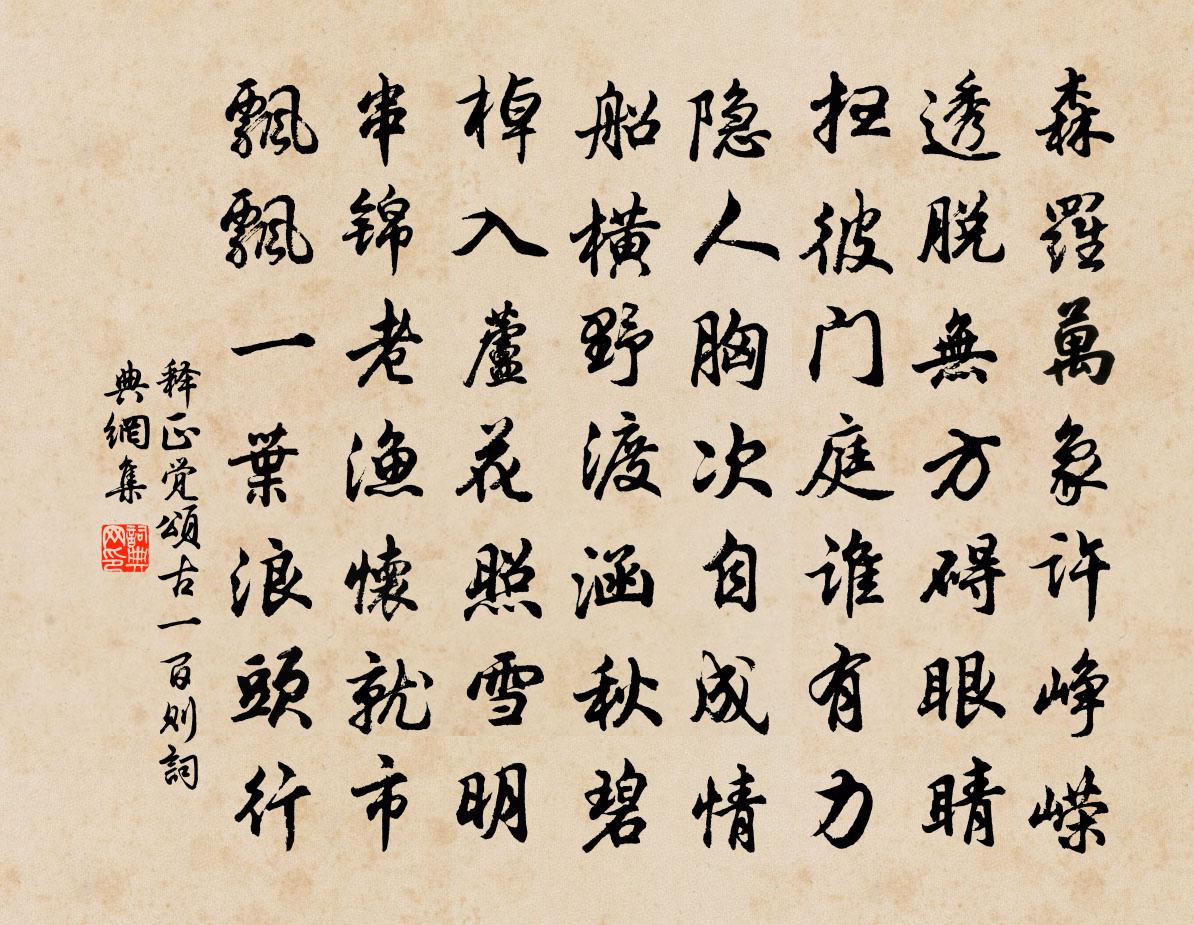 森羅萬象许峥嵘
透脱無方碍眼睛
扫彼门庭谁有力
隐人胸次自成情
船横野渡涵秋碧
棹入蘆花照雪明
串锦老渔懷就市
飘飘一葉浪頭行
释正觉頌古一百则詞
典網集
詞典网印